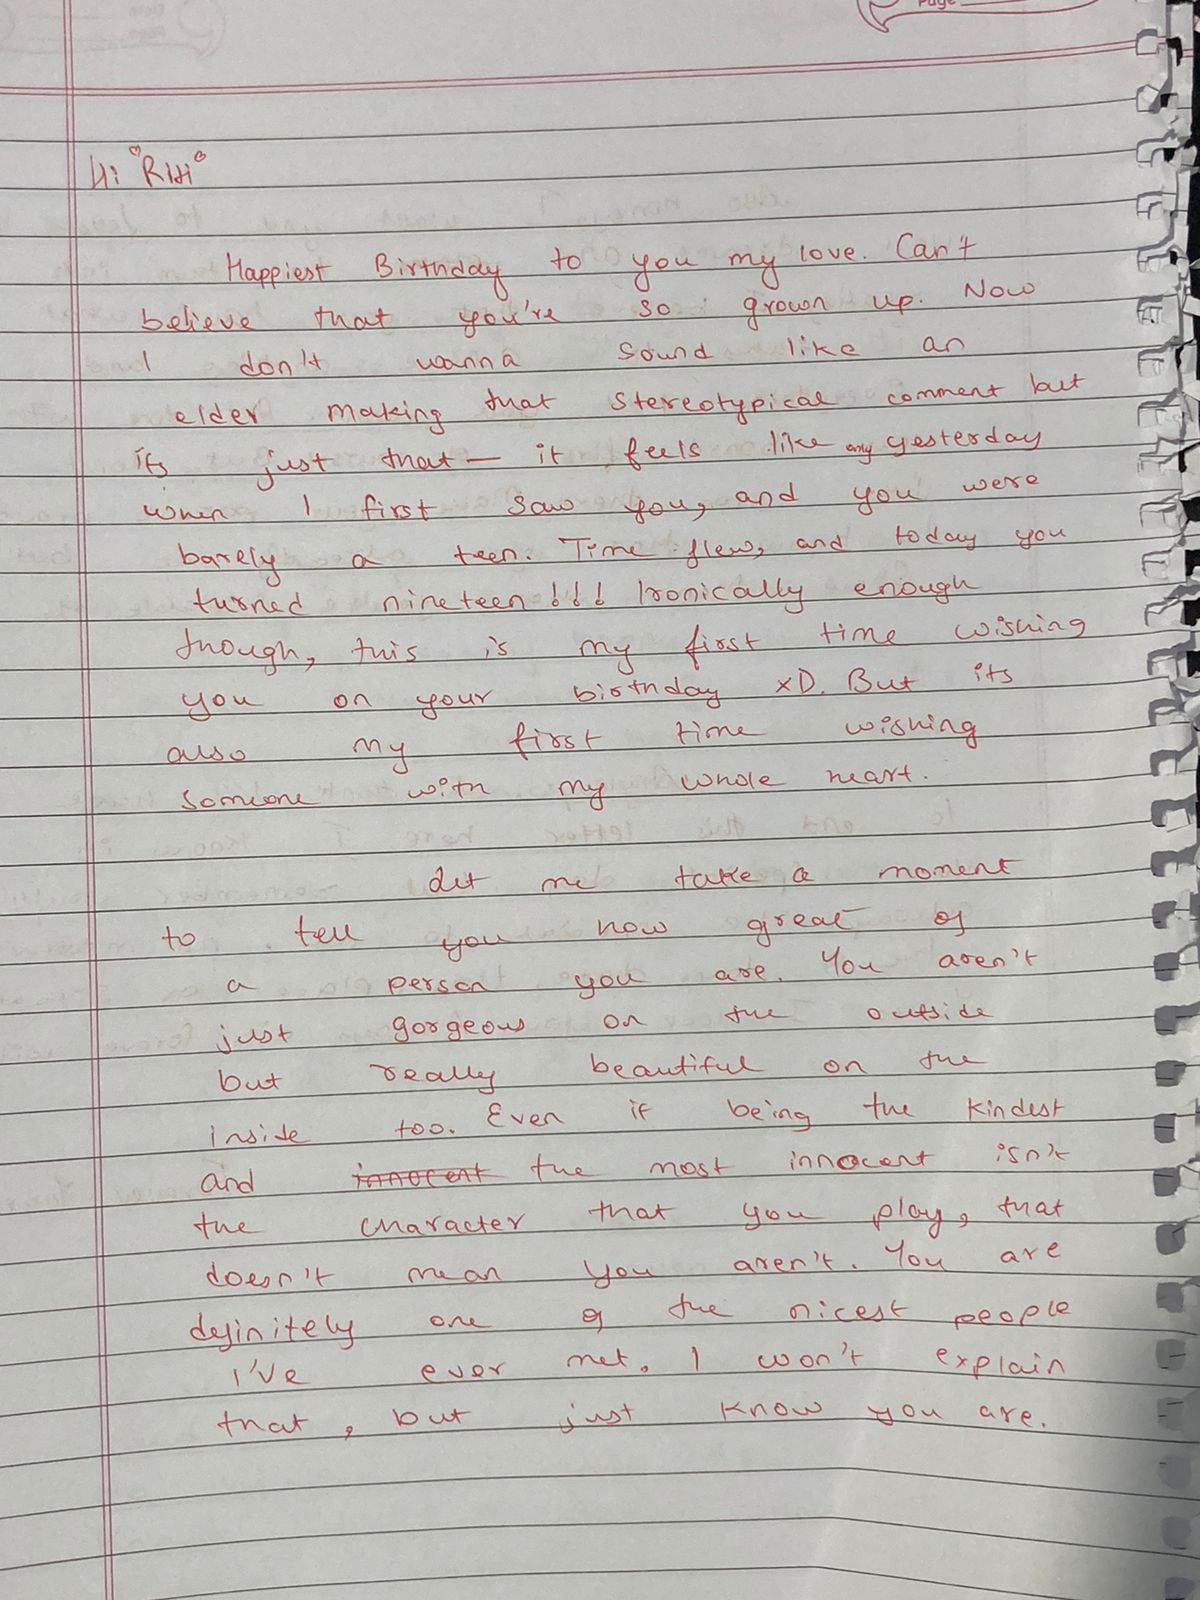 Page
Hi Riti
Happiest Birthday to you my love. Can't
believe that you're so grown up. Now
I don't wanna sound like an
elder making that stereotypical comment but
its just that — it feels like only yesterday
when I first saw you, and you were
barely a teen. Time flew, and today you
turned nineteen!!! Ironically enough
though, this is my first time wishing
you on your birthday xD. But its
also my first time wishing
someone with my whole heart.
Let me take a moment
to tell you how great of
a person you are. You aren't
just gorgeous on the outside
but really beautiful on the
inside too. Even if being the kindest
and innocent the most innocent isn't
the character that you play, that
doesn't mean you aren't. You are
definitely one of the nicest people
I've ever met. I won't explain
that, but just know you are.